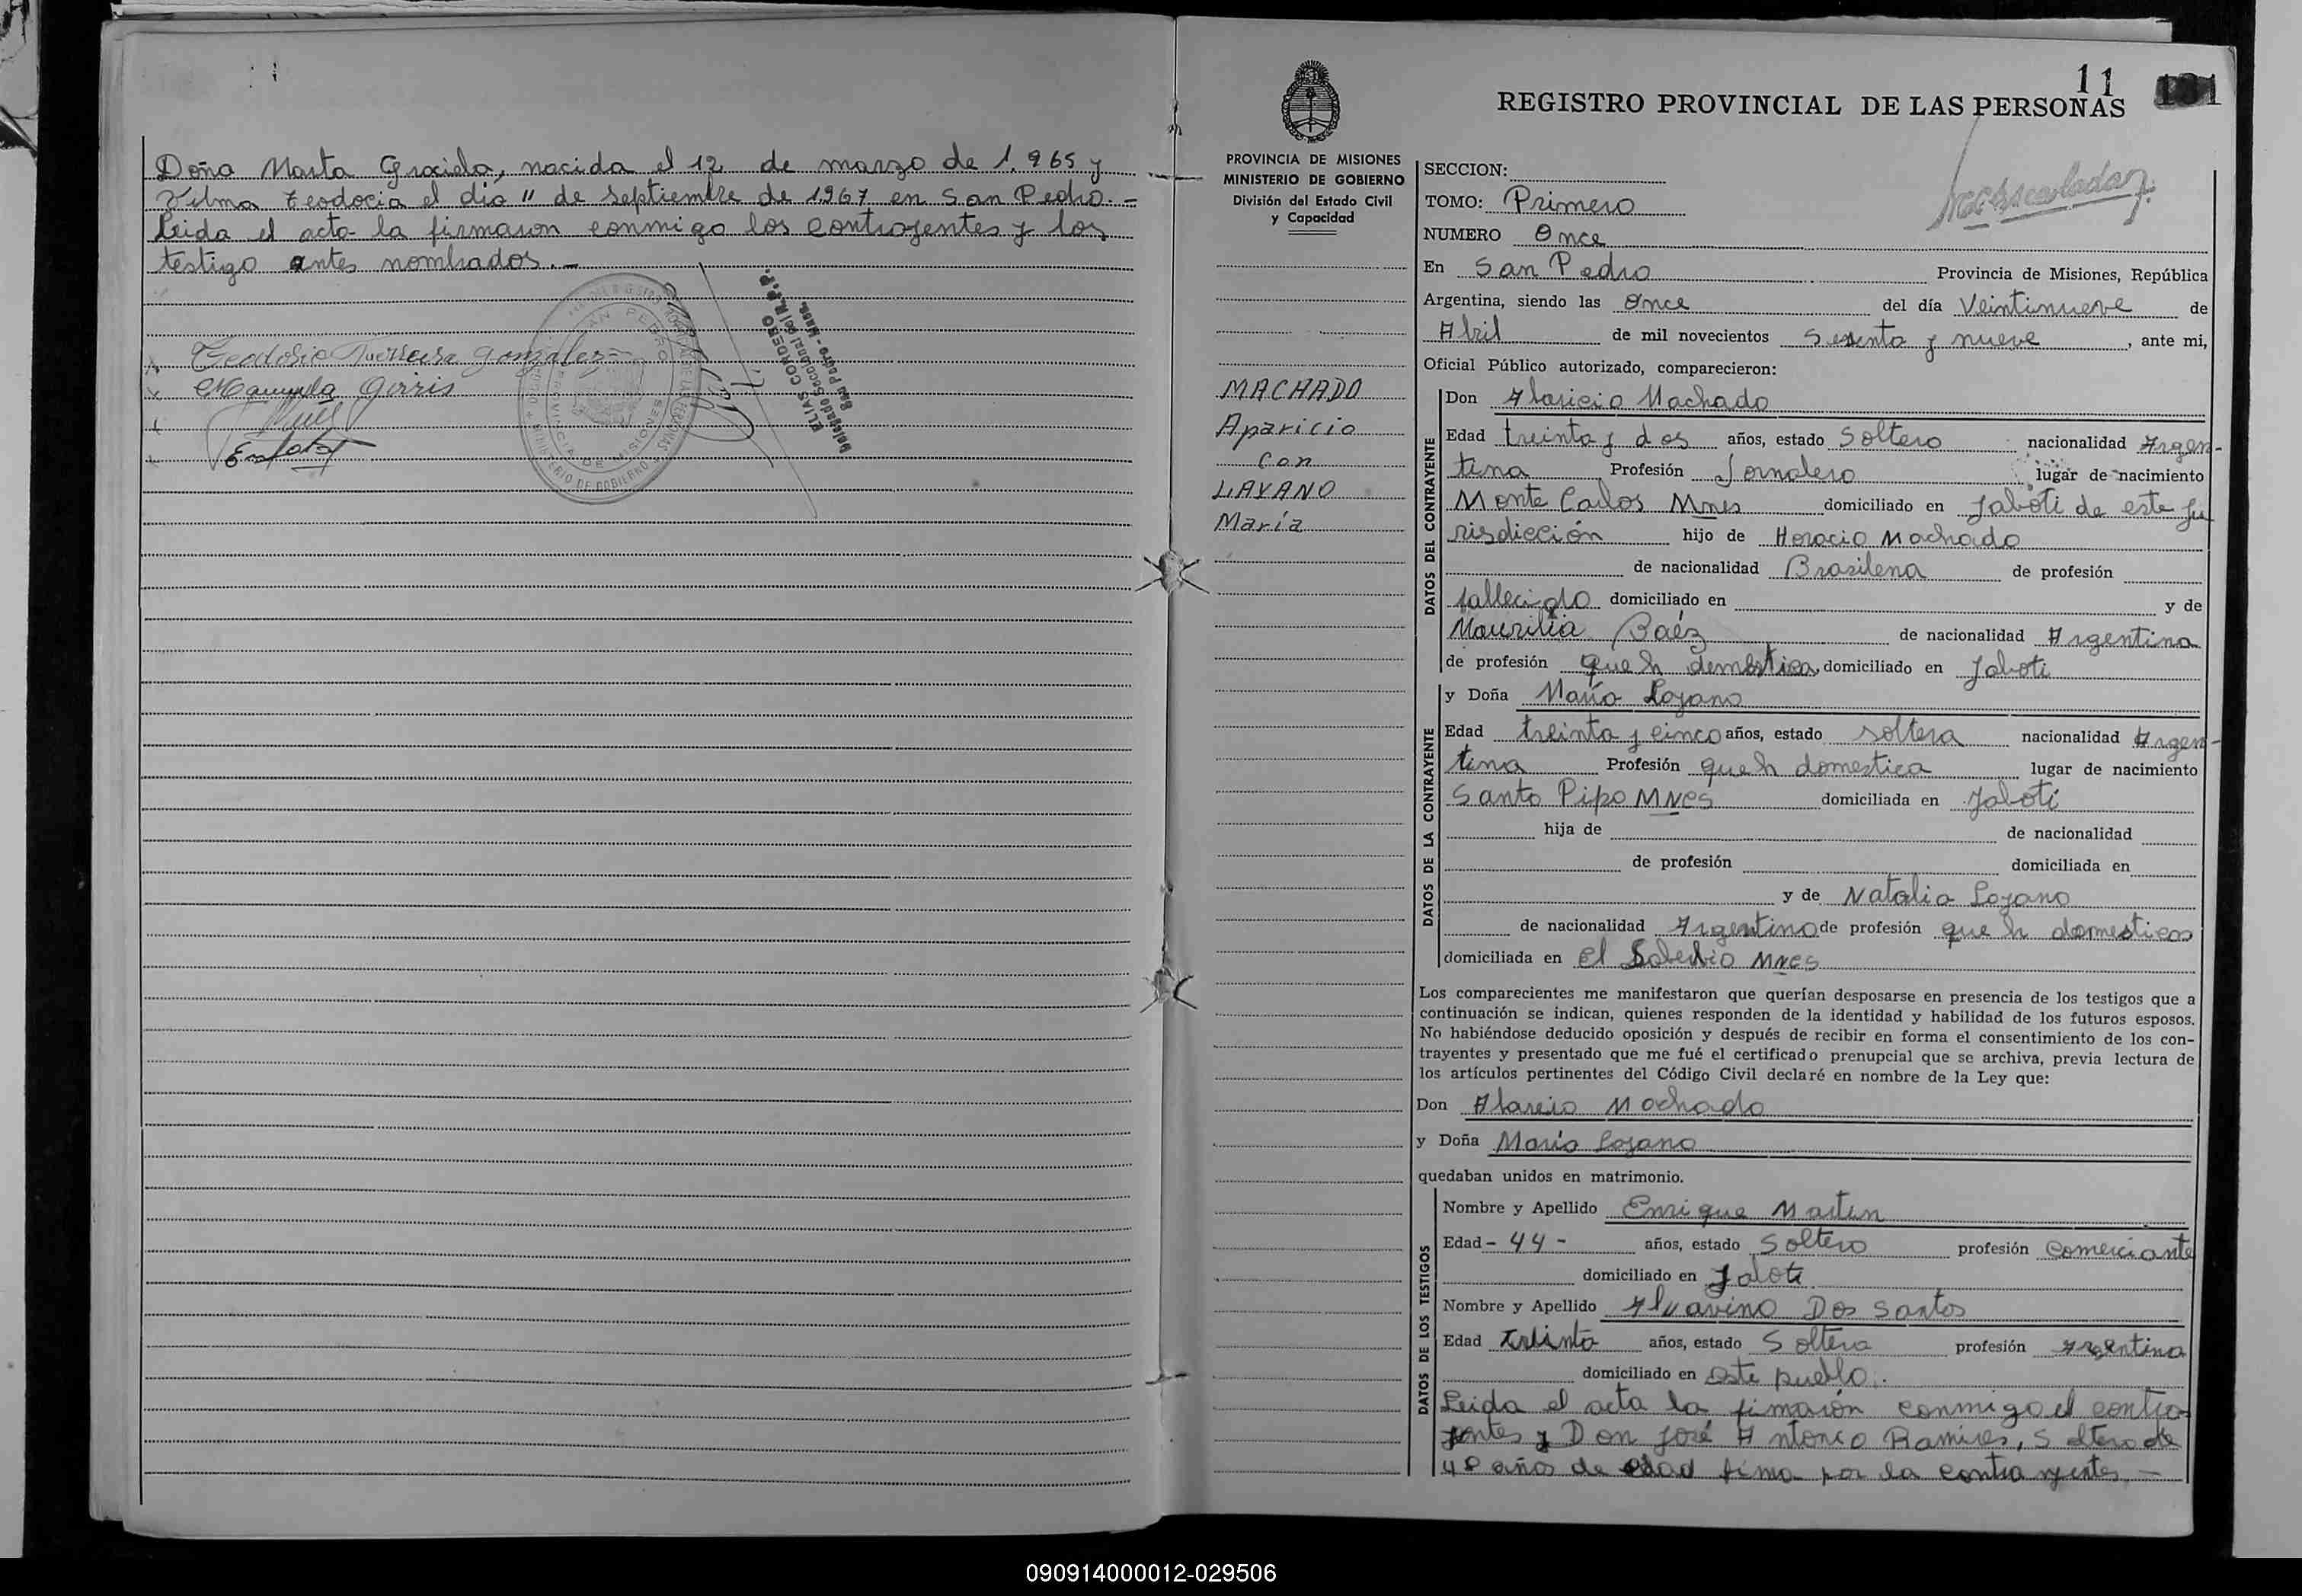 Doña Marta Graciela, nacida el 12 de marzo de 1.965 y
Vilma Teodocia el dia 11 de septiembre de 1967 en San Pedro.-
Leida el acta la firmaron conmigo los contrayentes y los
testigo antes nombrados.-
Teodosio Gonzalez
SAN PEDRO
PROVINCIA DE MISIONES
MINISTERIO DE GOBIERNO
ELIAS CORDERO
Delegado Seccional del R.P.P.
San Pedro - Mnes.
11
REGISTRO PROVINCIAL DE LAS PERSONAS
PROVINCIA DE MISIONES
MINISTERIO DE GOBIERNO
División del Estado Civil
y Capacidad
MACHADO
Aparicio
Con
LAYANO
María
SECCION:
TOMO: Primero
NUMERO Once
En San Pedro Provincia de Misiones, República
Argentina, siendo las Once del día Veintinueve de
Abril de mil novecientos Sesenta y nueve, ante mi,
Oficial Público autorizado, comparecieron:
DATOS DEL CONTRAYENTE
Don Aparicio Machado
Edad treinta y dos años, estado Soltero nacionalidad Argen-
tina Profesión Jornalero lugar de nacimiento
Monte Carlos Mnes domiciliado en Jaboti de este ju
risdicción hijo de Horacio Machado
de nacionalidad Brasilena de profesión
fallecido domiciliado en y de
Maurilia Baéz de nacionalidad Argentina
de profesión que h domestica domiciliado en Jaboti
DATOS DE LA CONTRAYENTE
y Doña María Loyano
Edad treinta y cinco años, estado soltera nacionalidad Argen-
tina Profesión queh domestica lugar de nacimiento
Santo Pipo MNES domiciliada en Jaboti
hija de de nacionalidad
de profesión domiciliada en
y de Natalia Loyano
de nacionalidad Argentina de profesión que h domesticos
domiciliada en El Soberbio MNES
Los comparecientes me manifestaron que querían desposarse en presencia de los testigos que a
continuación se indican, quienes responden de la identidad y habilidad de los futuros esposos.
No habiéndose deducido oposición y después de recibir en forma el consentimiento de los con-
trayentes y presentado que me fué el certificado prenupcial que se archiva, previa lectura de
los artículos pertinentes del Código Civil declaré en nombre de la Ley que:
Don Machado
y Doña María Loyano
quedaban unidos en matrimonio.
DATOS DE LOS TESTIGOS
Nombre y Apellido Enrique Martin
Edad - 44 - años, estado Soltero profesión Comerciante
domiciliado en Jaloti
Nombre y Apellido Dos Santos
Edad treinta años, estado Soltera profesión Argentina
domiciliado en este pueblo.
Leida el acta la fimarón conmigo el contra-
yentes y Don José Antonio Ramires, Soltero de
años de edad fima por la contrayentes.-
090914000012-029506